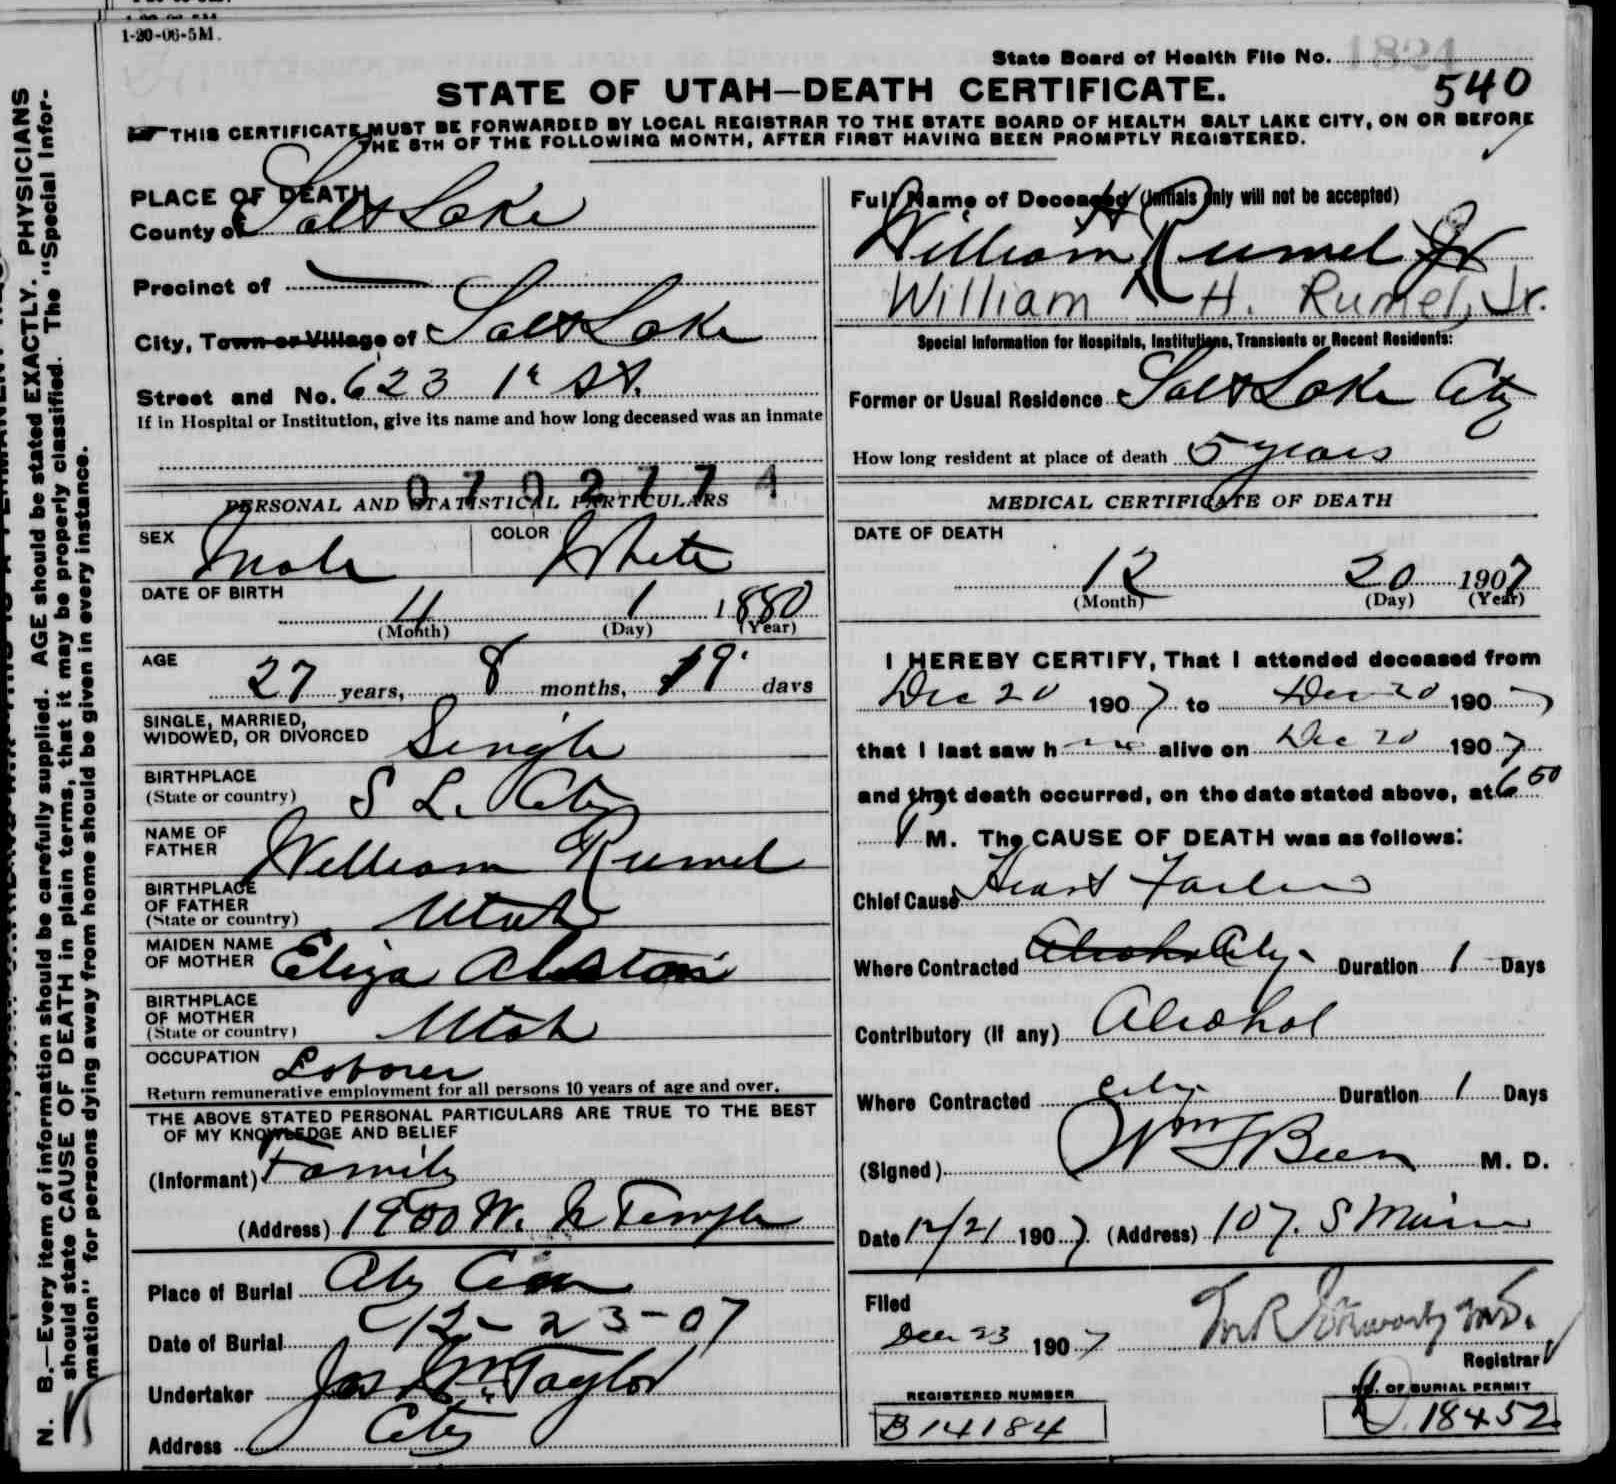 1-20-06-5M.
State Board of Health File No. 1824
540
STATE OF UTAH—DEATH CERTIFICATE.
THIS CERTIFICATE MUST BE FORWARDED BY LOCAL REGISTRAR TO THE STATE BOARD OF HEALTH SALT LAKE CITY, ON OR BEFORE
THE 5TH OF THE FOLLOWING MONTH, AFTER FIRST HAVING BEEN PROMPTLY REGISTERED.
N. B.—Every item of information should be carefully supplied. AGE should be stated EXACTLY. PHYSICIANS
should state CAUSE OF DEATH in plain terms, that it may be properly classified. The "Special Infor-
mation" for persons dying away from home should be given in every instance.
PLACE OF DEATH
County of Salt Lake
Precinct of —
City, Town or Village of Salt Lake
Street and No. 623 1st St.
If in Hospital or Institution, give its name and how long deceased was an inmate
0 7 0 2 7 7 4
PERSONAL AND STATISTICAL PARTICULARS
SEX Male COLOR White
DATE OF BIRTH
4 1 1880
(Month) (Day) (Year)
AGE
27 years, 8 months, 19 days
SINGLE, MARRIED,
WIDOWED, OR DIVORCED Single
BIRTHPLACE
(State or country) S L. City
NAME OF
FATHER William Rumel
BIRTHPLACE
OF FATHER
(State or country) Utah
MAIDEN NAME
OF MOTHER Eliza Alston
BIRTHPLACE
OF MOTHER
(State or country) Utah
OCCUPATION Laborer
Return remunerative employment for all persons 10 years of age and over.
THE ABOVE STATED PERSONAL PARTICULARS ARE TRUE TO THE BEST
OF MY KNOWLEDGE AND BELIEF
(Informant) Family
(Address) 1900 W. N Temple
Place of Burial City Cem
Date of Burial 12-23-07
Undertaker Jos Wm. Taylor
Address City
Full Name of Deceased (Initials only will not be accepted)
William H Rumel Jr
William H. Rumel, Jr.
Special Information for Hospitals, Institutions, Transients or Recent Residents:
Former or Usual Residence Salt Lake City
How long resident at place of death 5 years
MEDICAL CERTIFICATE OF DEATH
DATE OF DEATH
12 20 1907
(Month) (Day) (Year)
I HEREBY CERTIFY, That I attended deceased from
Dec 20 1907 to Dec 20 1907
that I last saw h alive on Dec 20 1907
and that death occurred, on the date stated above, at 6 50
P M. The CAUSE OF DEATH was as follows:
Chief Cause Heart Failure
Where Contracted Alcohol City Duration 1 Days
Contributory (if any) Alcohol
Where Contracted City Duration 1 Days
(Signed) Wm F Beer M. D.
Date 12/21 1907 (Address) 107. S Main
Filed
Dec 23 1907
Registrar
REGISTERED NUMBER
B14184
NO. OF BURIAL PERMIT
D. 18452